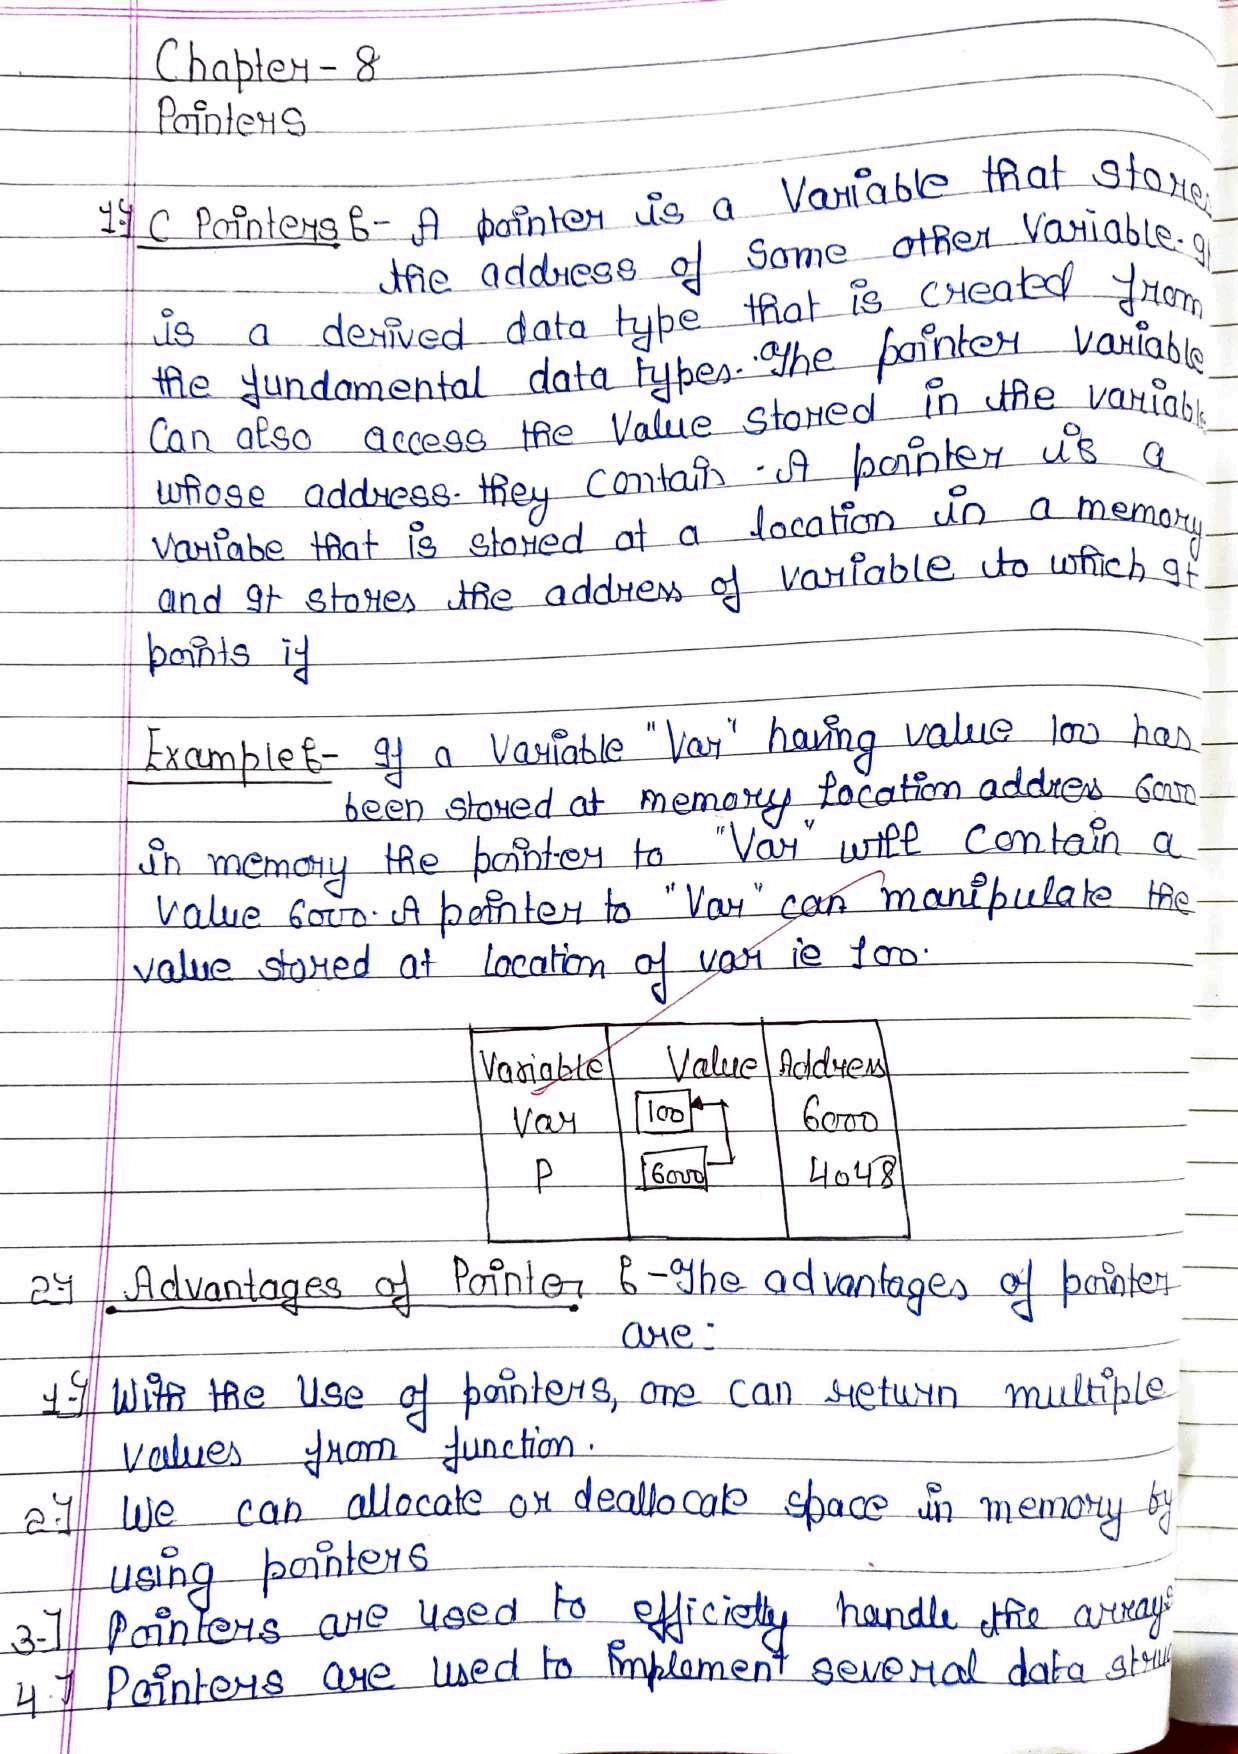 Chapter - 8
Pointers
1) C Pointers :- A pointer is a Variable that store
the address of Some other Variable. It
is a derived data type that is created from
the fundamental data types. The pointer variable
Can also access the Value stored in the variabl
whose address they contain. A pointer is a
variabe that is stored at a location in a memory
and It stores the address of variable to which It
points if
Example :- If a Variable "Var" having value 100 has
been stored at memory location address 6000
in memory the pointer to "Var" will contain a
value 6000. A pointer to "Var" can manipulate the
value stored at location of var ie 100.
Variable Value Address
Var 100 6000
P 6000 4048
2) Advantages of Pointer :- The advantages of pointer
are :
1) With the Use of pointers, one can return multiple
values from function.
2) We can allocate or deallocate space in memory by
using pointers
3) Pointers are used to efficietly handle the arrays
4) Pointers are used to implement several data struc